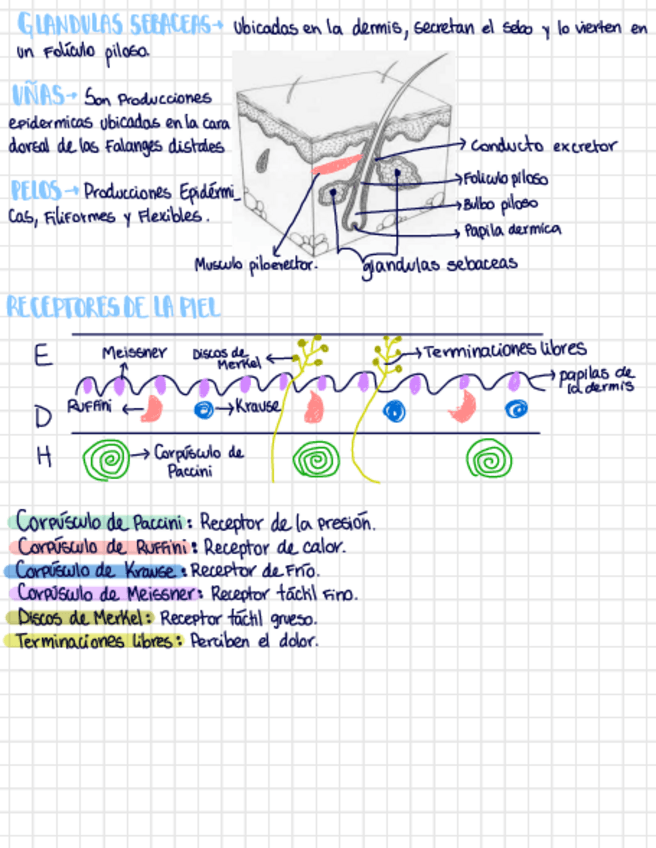 GLANDULAS SEBACEAS→ Ubicadas en la dermis, secretan el sebo y lo vierten en
un Folículo piloso.
UÑAS→ Son Producciones
epidermicas ubicadas en la cara
dorsal de las Falanges distales
PELOS→ Producciones Epidérmi_
Cas, Filiformes y Flexibles.
Conducto excretor
Foliculo piloso
Bulbo piloso
Papila dermica
Musculo piloerector.
glandulas sebaceas
RECEPTORES DE LA PIEL
E
Meissner
Discos de
Merkel
Terminaciones libres
papilas de
la dermis
D
Ruffini
Krause
H
Corpúsculo de
Paccini
Corpúsculo de Paccini: Receptor de la presión.
Corpúsculo de Ruffini: Receptor de calor.
Corpúsculo de Krause: Receptor de Frío.
Corpúsculo de Meissner: Receptor táctil Fino.
Discos de Merkel: Receptor táctil grueso.
Terminaciones libres: Perciben el dolor.